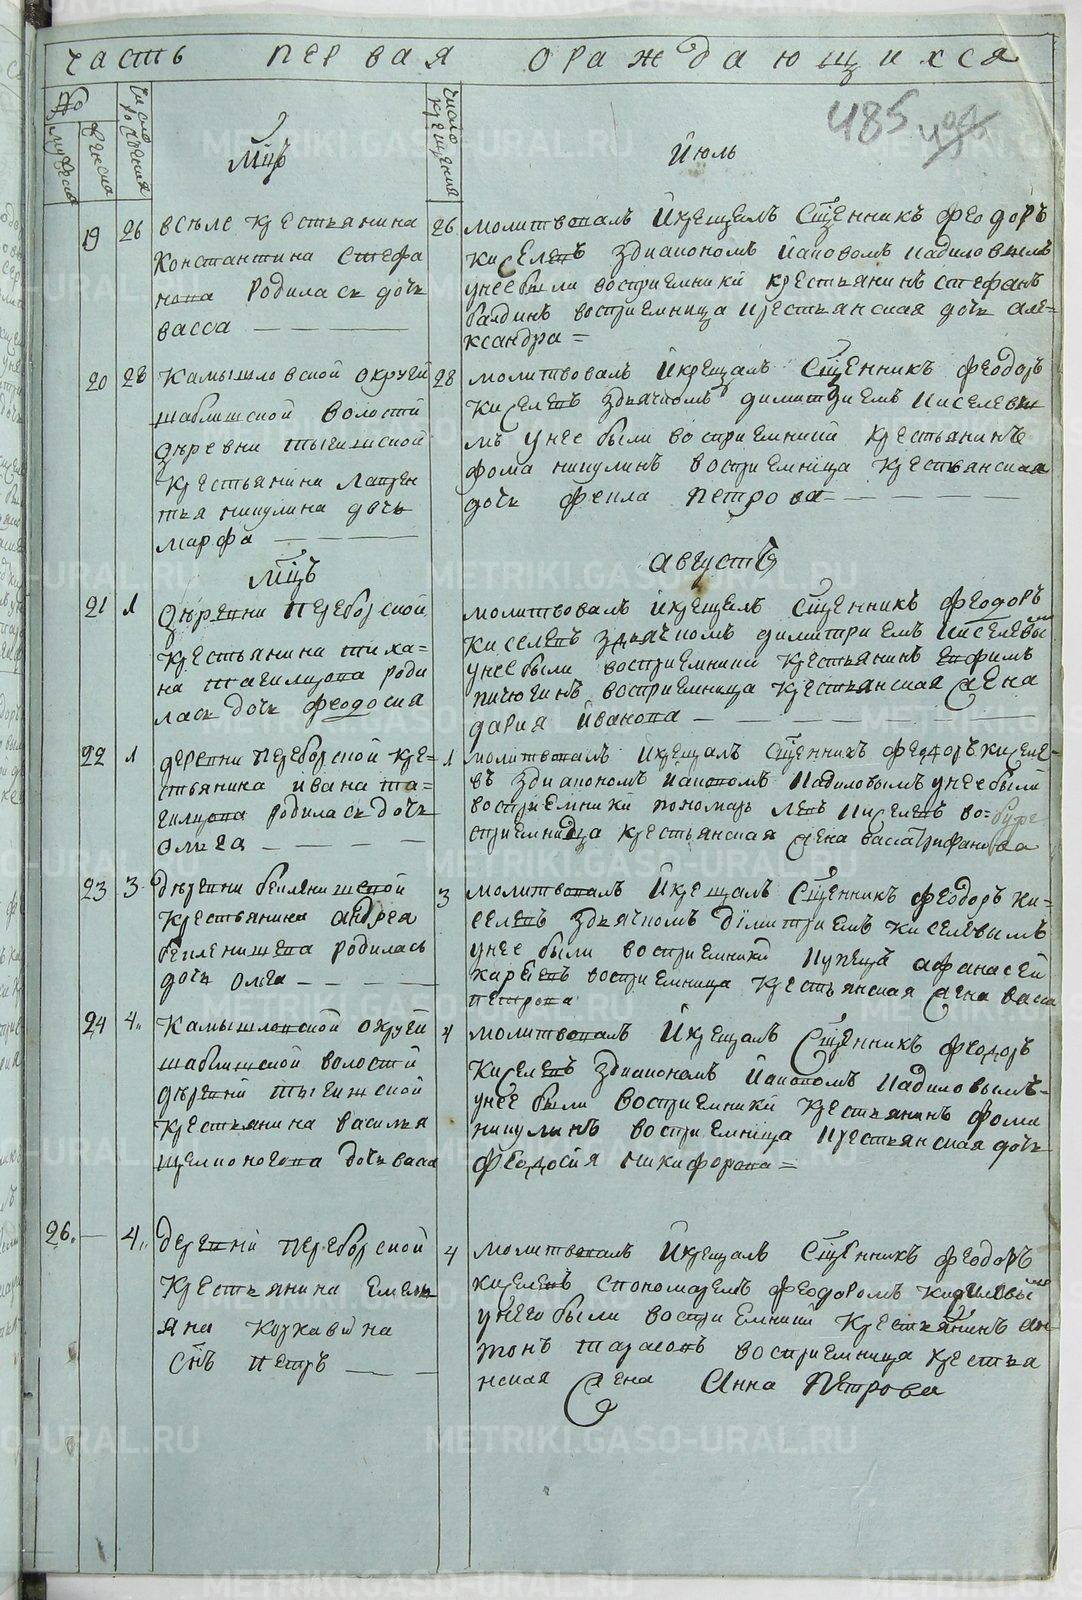 часть первая о раждающихся
№
число рождения
число крещения
мужеска
женска
485
мцъ
июль
19
26
в селе крестьянина
Константина Стефа
нова родилась дочь
васса
26
молитвовалъ и крещалъ Сщенникъ феодоръ
киселевъ здиакономъ иаковомъ кадиловымъ
унее были восприемники крестьянинъ стефанъ
балдинъ восприемница крестьянская дочь але=
ксандра=
20
28
Камышловской округи
шаблишской волости
дѣревни тыгишской
крестьянина лаврен
тья никулина дочь
марфа
28
молитвовалъ и крещалъ Сщенникъ феодоръ
киселевъ здьячкомъ димитриемъ киселевы
мъ унее были восприемники крестьянинъ
фома никулинъ восприемница крестьянская
дочь фекла петрова
мцъ
августъ
21
1
дѣревни переборской
крестьянина тиха=
на тагилцова роди
лась дочь феодосия
молитвовалъ и крещалъ Сщенникъ феодоръ
киселевъ здьячкомъ димитриемъ киселевы
унее были восприемники крестьянинъ ефимъ
пичюгинъ восприемница крестьянская жена
дария иванова
22
1
деревни переборской кре=
стьянина ивана та=
гилцова родилась дочь
олга
1
молитвовалъ и крещалъ Сщенникъ феодоръ киселе=
въ здиакономъ иаковомъ кадиловымъ унее были
восприемники пономарь левъ киселевъ во=
сприемница крестьянская жена васса трифанова
23
3
дѣревни беиленишевой
крестьянина андрея
беиленишева родилась
дочь олга
3
молитвовалъ и крещалъ Сщенникъ феодоръ ки=
селевъ здьячкомъ димитриемъ киселевымъ
унее были восприемники купецъ афанасей
восприемница крестьянская жена васса
петрова
24
4
Камышловской округи
шаблишской волости
дѣревни тыгишской
крестьянина василья
щелконогова дочь васса
4
молитвовалъ и крещалъ Сщенникъ феодоръ
киселевъ здиакономъ иаковомъ кадиловымъ
унее были восприемники крестьянинъ фома
никулинъ восприемница крестьянская дочь
феодосия никифорова=
26.
4
деревни переборской
крестьянина емель
яна коржавина
снъ петръ
4
молитвовалъ и крещалъ Сщенникъ феодоръ
киселевъ спономаремъ феодоромъ
унего были восприемники крестьянинъ ан
тонъ тарасовъ восприемница крестья
нская жена Анна Петрова
METRIKI.GASO-URAL.RU